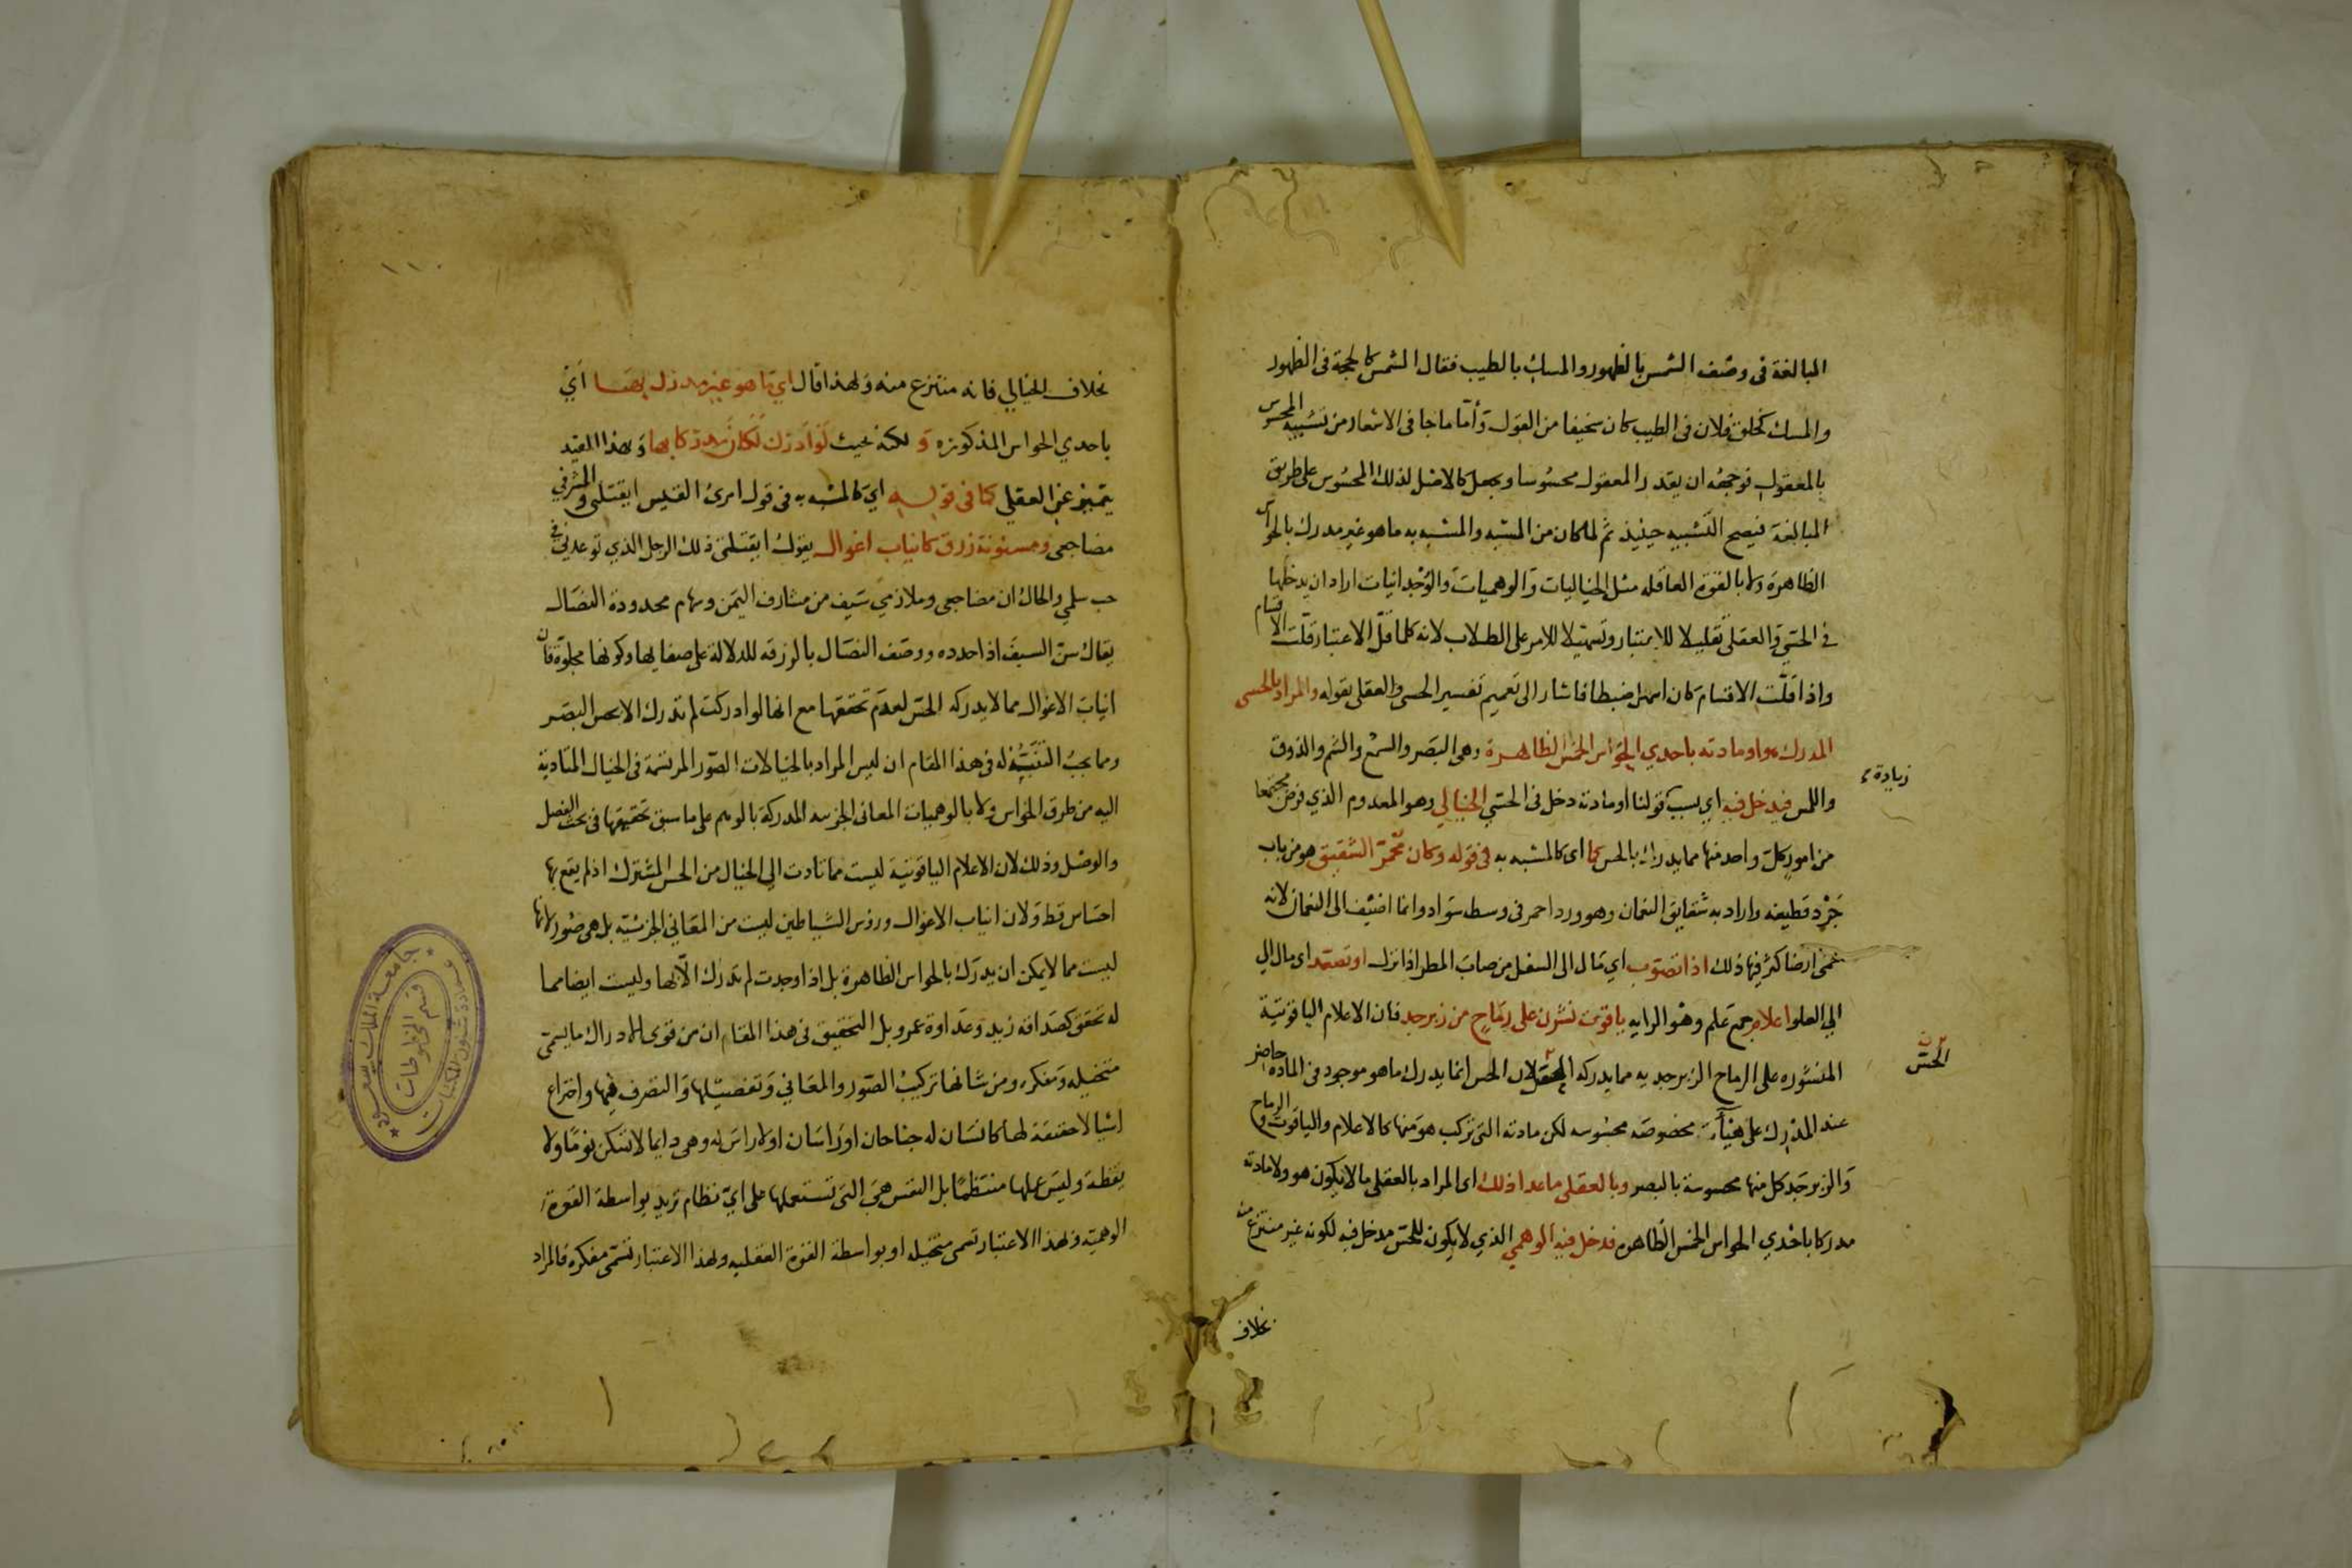 المبالغة فى وصف الشمس بالظهور والمسك بالطيب فقال الشمس كالحجة فى الظهور
والمسك كخلق فلان فى الطيب كان سخيفا من القول وأما ما جا فى الاشعار من تشبيه المحسوس
بالمعقول فوجهه ان يقدر المعقول محسوسا ويجعل كالاصل لذلك المحسوس على طريق
المبالغة فيصح التشبيه حينيذ ثم لما كان من المشبه والمشبه به ما هو غير مدرك بالحواس
الظاهرة ولا بالقوة العاقله مثل الخياليات والوهميات والوجدانيات اراد ان يدخلها
فى الحسي والعقلى تقليلا للاعتبار وتسهيلا للامر على الطلاب لانه كلما قل الاعتبار قلت الاقسام
واذا قلت الاقسام كان اسهل ضبطا فاشار الى تعميم تفسير الحسى والعقلى بقوله والمراد بالحسى
المدرك هو او مادته باحدي الحواس الخمس الظاهرة وهى البصر والسمع والشم والذوق
زيادة
واللمس فيدخل فيه اي بسبب قولنا او مادته دخل فى الحسي الخيالي وهو المعدوم الذي فرض مجتمعا
من امور كل واحد منها مما يدرك بالحس كما اى كالمشبه به فى قوله وكان محمر الشقيق هو من باب
جرد قطيفه واراد به شقايق النعمان وهو ورد احمر فى وسطه سواد وانما اضيف الى النعمان لانه
حمى ارضا كثر فيها ذلك اذا تصوب اي مال الى السفل من صاب المطر اذا نزل او تصعد اى مال الي
الي العلو اعلام جمع علم وهو الرايه ياقوت نشرن على رماح من زبرجد فان الاعلام الياقوتية
الحس
المنشوره على الرماح الزبرجديه مما يدركه لان الحس انما يدرك ما هو موجود فى الماده حاضر
عند المدرك على هيأت مخصوصه محسوسه لكن مادته التى تركب هو منها كالاعلام والياقوت والرماح
والزبرجد كل منها محسوسة بالبصر وبالعقلى ما عدا ذلك اى المراد بالعقلى ما لا يكون هو ولا مادته
مدركا باحدي الحواس الخمس الظاهره فدخل فيه الوهمي الذي لا يكون للحس مدخل فيه لكونه غير منتزع منه
بخلاف
١١٠
بخلاف الخيالي فانه منتزع منه ولهذا قال اي ما هو غير مدرك بها اي
باحدي الحواس المذكوره و لكنه بحيث لو ادرك لكان مدركا بها وبهذا القيد
يتميز عن العقلي كما فى قوله اي كالمشبه به فى قول امرئ القيس ايقتلنى والمشرفي
مضاجعى ومسنونة زرق كانياب اغوال يقول ايقتلنى ذلك الرجل الذي توعدنى فى
حب سلمي والحال ان مضاجعى وملازمي سيف من مشارف اليمن وسهام محدودة النصال
يقال سن السيف اذا حدده ووصف النصال بالزرقه للدلالة على صفايها وكونها مجلوة فان
انياب الاغوال مما لا يدركه الحس لعدم تحققها مع انها لو ادركت لم تدرك الا بحس البصر
ومما يجب التنبه له فى هذا المقام ان ليس المراد بالخيالات الصور المرتسمة فى الخيال المتادية
اليه من طرق الحواس ولا بالوهميات المعانى الجزئيه المدركة بالوهم على ما سبق تحقيقها فى بحث الفصل
والوصل وذلك لان الاعلام الياقوتية ليست مما تادت الي الخيال من الحس المشترك اذ لم يقع بها
احساس قط ولان انياب الاغوال ورؤس الشياطين ليست من المعاني الجزئية بل هى صور لانها
ليست مما لا يمكن ان يدرك بالحواس الظاهرة بل اذا وجدت لم تدرك الا بها وليست ايضا مما
له تحقق كصداقه زيد وعداوة عمرو بل التحقيق فى هذا المقام ان من قوى الادراك ما يسمى
متخيله ومفكره ومن شانها تركيب الصور والمعاني وتفصيلها والتصرف فيها واختراع
اشيا لا حقيقة لها كانسان له جناحان او راسان او لا راس له وهى دايما لا تسكن نوما ولا
يقظة وليس عملها منتظما بل النفس هى التى تستعملها على اي نظام تريد بواسطة القوة
الوهمية وبهذا الاعتبار تسمى متخيله او بواسطة القوة العقليه وبهذا الاعتبار تسمى مفكره فالمراد
جامعة الملك سعود
عمادة شئون المكتبات
قسم المخطوطات